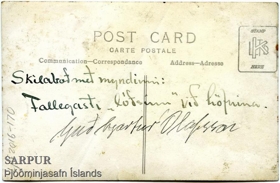 POST CARD
CARTE POSTALE
Communication—Correspondence Address—Adresse
Skilaboð með myndinni:
Fallegasti "kötturinn" við höfnina.
Guðbjartur Ólafsson
SARPUR
Þjóðminjasafn Íslands